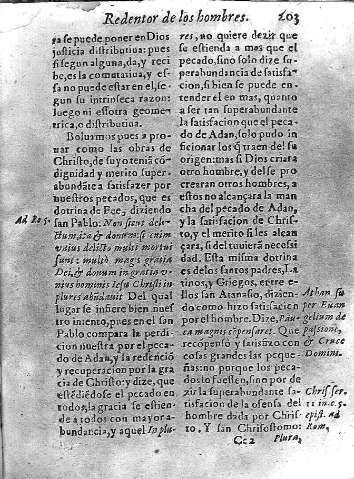 Redentor de los hombres. 203
ra se puede poner en Dios
justicia distributiua: pues
si segun alguna, da, y reci
be, es la comutatiua, y es-
sa no puede estar en el, se-
gun su intrinseca razon:
luego ni essotra geome-
trica, o distributiua.
Boluamos pues a pro-
uar como las obras de
Christo, de suyo teniā cō-
dignidad y merito super
abundāte a satisfazer por
nuestros pecados, que es
dotrina de Fee, diziendo
san Pablo: Non sicut deli-
Ad Ro. 5.
ctum, ita & donum: si enim
vnius delicto multi mortui
sunt: multò magis gratia
Dei, & donum in gratia v-
nius hominis Iesu Christi in
plures abūdauit. Del qual
lugar se infiere bien nues
tro intento, pues en el san
Pablo compara la perdi-
cion nuestra por el peca-
do de Adan, y la redenciō
y recuperacion por la gra
cia de Christo: y dize, que
estēdiēdose el pecado en
todos, la gracia se estien-
de a todos con mayor a-
bundancia, y aquel In plu-
res, no quiere dezir que
se estienda a mas que el
pecado, sino solo dize su-
perabundancia de satisfa-
cion, si bien se puede en-
tender el en mas, quanto
a ser tan superabundante
la satisfacion que el peca-
do de Adan, solo pudo in
ficionar los q̄ traen del su
origen: mas si Dios criara
otro hombre, y del se pro
crearan otros hombres, a
estos no alcançara la man
cha del pecado de Adan,
y la satisfacion de Chris-
to, y el merito si les alcan
çara, si del tuuierā necessi
dad. Esta misma dotrina
es de los santos padres, La
tinos, y Griegos, entre e-
llos san Atanasio, dizien-
do como hizo satisfacion
por el hombre. Dize, Pau-
ca magnis cōpensares. Que
recompensò y satisfizo con
cosas grandes las peque-
ñas: no porque los peca-
dos lo fuessen, sino por de
zir la superabundante sa-
tisfacion de la ofensa del
hombre dada por Chris-
to. Y san Chrisostomo:
Athan. su
per Euan
gelium de
passione,
& Cruce
Domini.
Chrisf. ser.
epist. ad
Rom,
Cc 2 Plura,